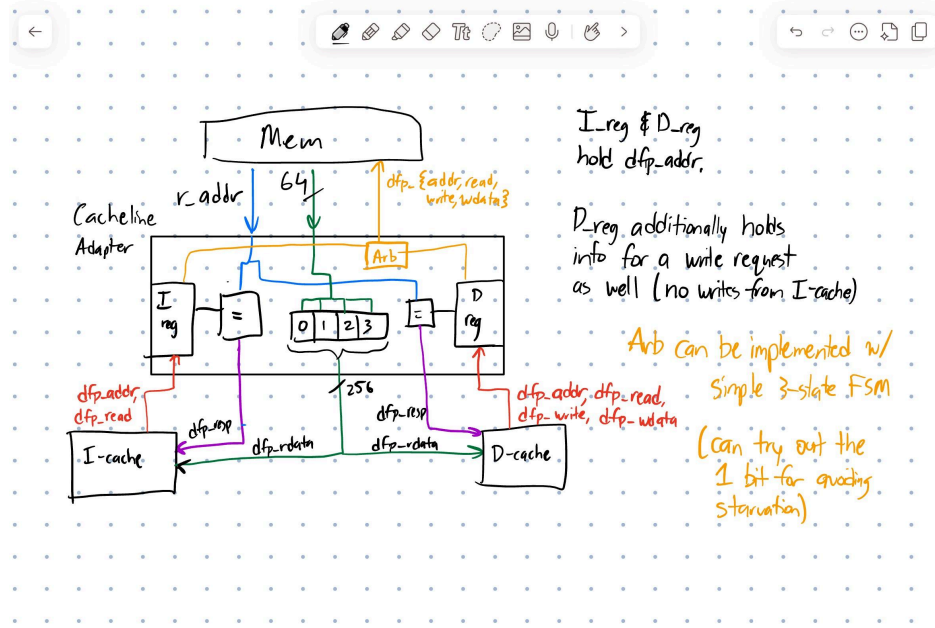 Tt
Mem
r_addr
64
dfp_{addr, read,
write, wdata}
Cacheline
Adapter
Arb
I
reg
=
0 1 2 3
=
D
reg
256
dfp_addr,
dfp_read
dfp_resp
dfp_rdata
dfp_rdata
dfp_resp
dfp_addr, dfp_read,
dfp_write, dfp_wdata
I-cache
D-cache
I_reg & D_reg
hold dfp_addr.
D_reg additionally holds
info for a write request
as well (no writes from I-cache)
Arb can be implemented w/
simple 3-state FSM
(can try out the
1 bit for avoiding
starvation)